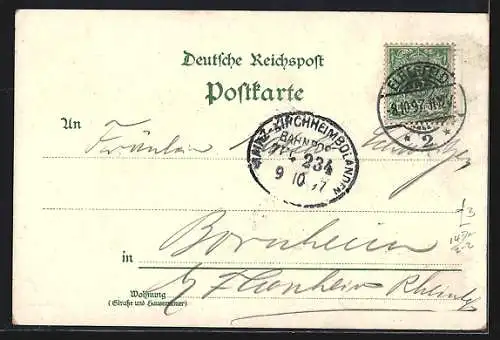 Deutsche Reichspost
Postkarte
ELBERFELD
9.10.97. 11-12 V
* 2 *
An Fräulein
MAINZ-KIRCHHEIMBOLANDEN
BAHNPOST
ZUG 234
9 10 97
in Bornheim
b/ Flonheim Rheinh.
Wohnung
(Straße und Hausnummer)